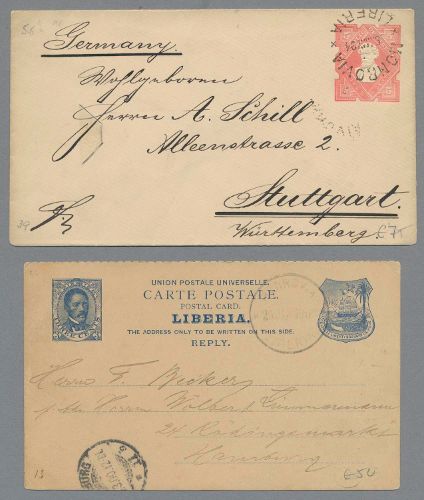 Germany
Wohlgeboren
Herrn A. Schill
Alleenstrasse 2.
Stuttgart.
Württemberg.
MONROVIA
LIBERIA
£7
UNION POSTALE UNIVERSELLE.
CARTE POSTALE.
POSTAL CARD.
LIBERIA.
THE ADDRESS ONLY TO BE WRITTEN ON THIS SIDE.
REPLY.
THREE CENTS
Herrn F. Bieber
Herren Wölber &
24 Rödingsmarkt
Hamburg
13
£50